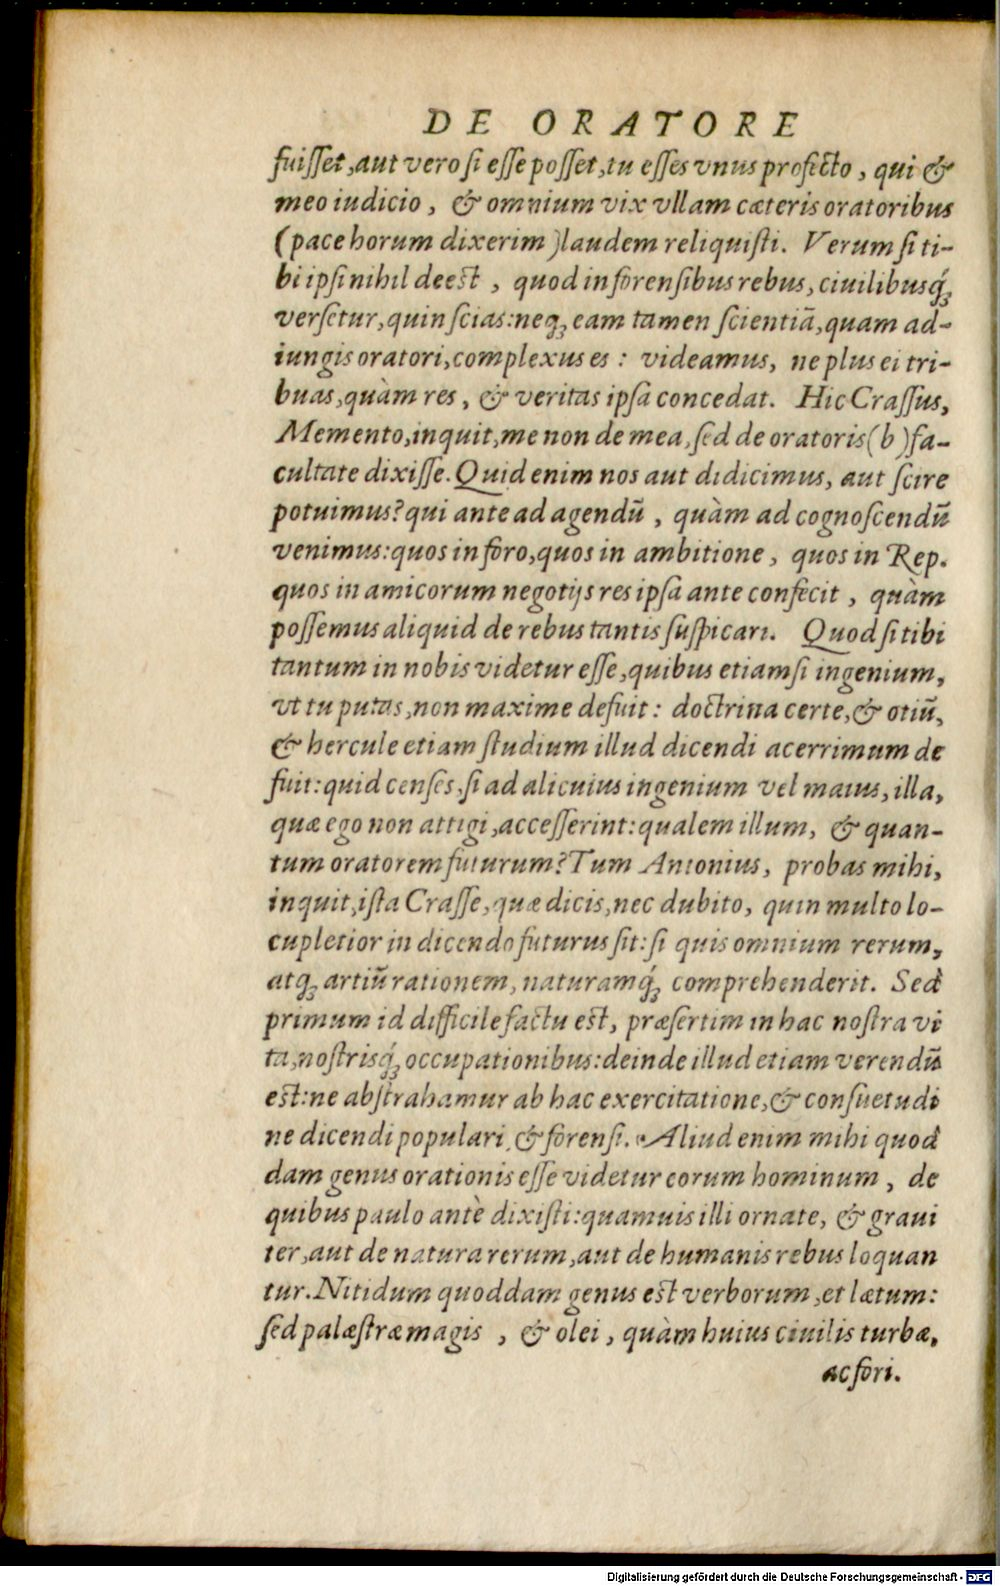 DE ORATORE
fuisset, aut vero si esse posset, tu esses vnus profecto, qui &
meo iudicio, & omnium vix vllam cæteris oratoribus
(pace horum dixerim) laudem reliquisti. Verum si ti-
bi ipsi nihil deest, quod in forensibus rebus, ciuilibusq́;
versetur, quin scias: neq; eam tamen scientiā, quam ad-
iungis oratori, complexus es: videamus, ne plus ei tri-
buas, quàm res, & veritas ipsa concedat. Hic Crassus,
Memento, inquit, me non de mea, sed de oratoris (b) fa-
cultate dixisse. Quid enim nos aut didicimus, aut scire
potuimus? qui ante ad agendū, quàm ad cognoscendū
venimus: quos in foro, quos in ambitione, quos in Rep.
quos in amicorum negotijs res ipsa ante confecit, quàm
possemus aliquid de rebus tantis suspicari. Quod si tibi
tantum in nobis videtur esse, quibus etiamsi ingenium,
vt tu putas, non maxime defuit: doctrina certe, & otiū,
& hercule etiam studium illud dicendi acerrimum de
fuit: quid censes, si ad alicuius ingenium vel maius, illa,
quæ ego non attigi, accesserint: qualem illum, & quan-
tum oratorem futurum? Tum Antonius, probas mihi,
inquit, ista Crasse, quæ dicis, nec dubito, quin multo lo-
cupletior in dicendo futurus sit: si quis omnium rerum,
atq; artiū rationem, naturamq́; comprehenderit. Sed
primum id difficile factu est, præsertim in hac nostra vi
ta, nostrisq́; occupationibus: deinde illud etiam verendū
est: ne abstrahamur ab hac exercitatione, & consuetudi
ne dicendi populari, & forensi. Aliud enim mihi quod
dam genus orationis esse videtur eorum hominum, de
quibus paulo antè dixisti: quamuis illi ornate, & graui
ter, aut de natura rerum, aut de humanis rebus loquan
tur. Nitidum quoddam genus est verborum, et lætum:
sed palæstræ magis, & olei, quàm huius ciuilis turbæ,
ac fori.
Digitalisierung gefördert durch die Deutsche Forschungsgemeinschaft - DFG